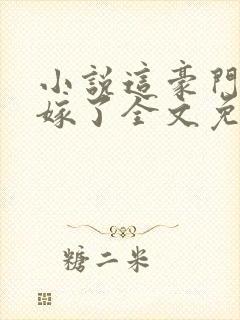 小說這豪門
嫁了全文免
糖二米